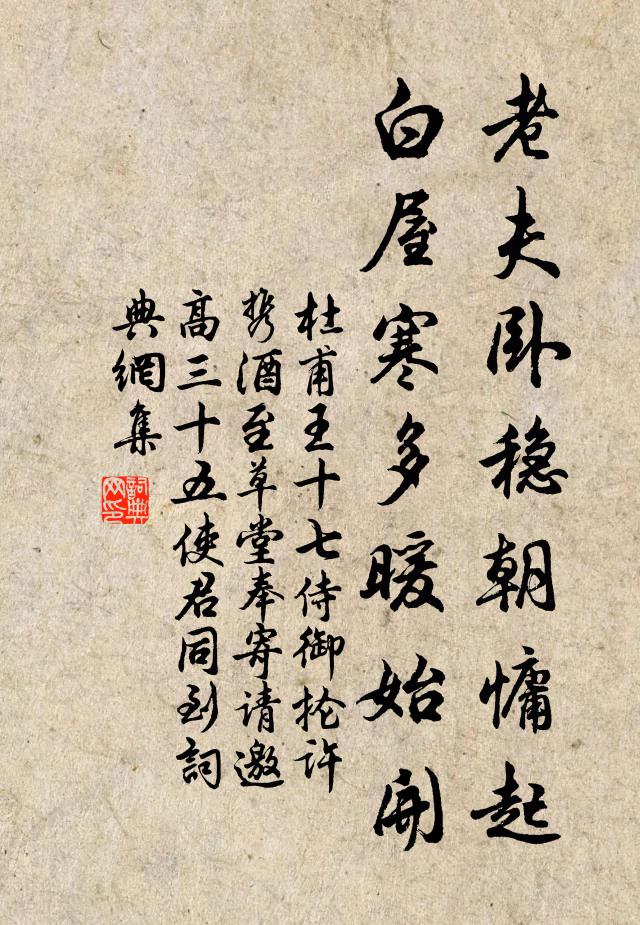 老夫卧稳朝慵起
白屋寒多暖始開
杜甫王十七侍御掄许
携酒至草堂奉寄请邀
高三十五使君同到詞
典網集
詞典
网印